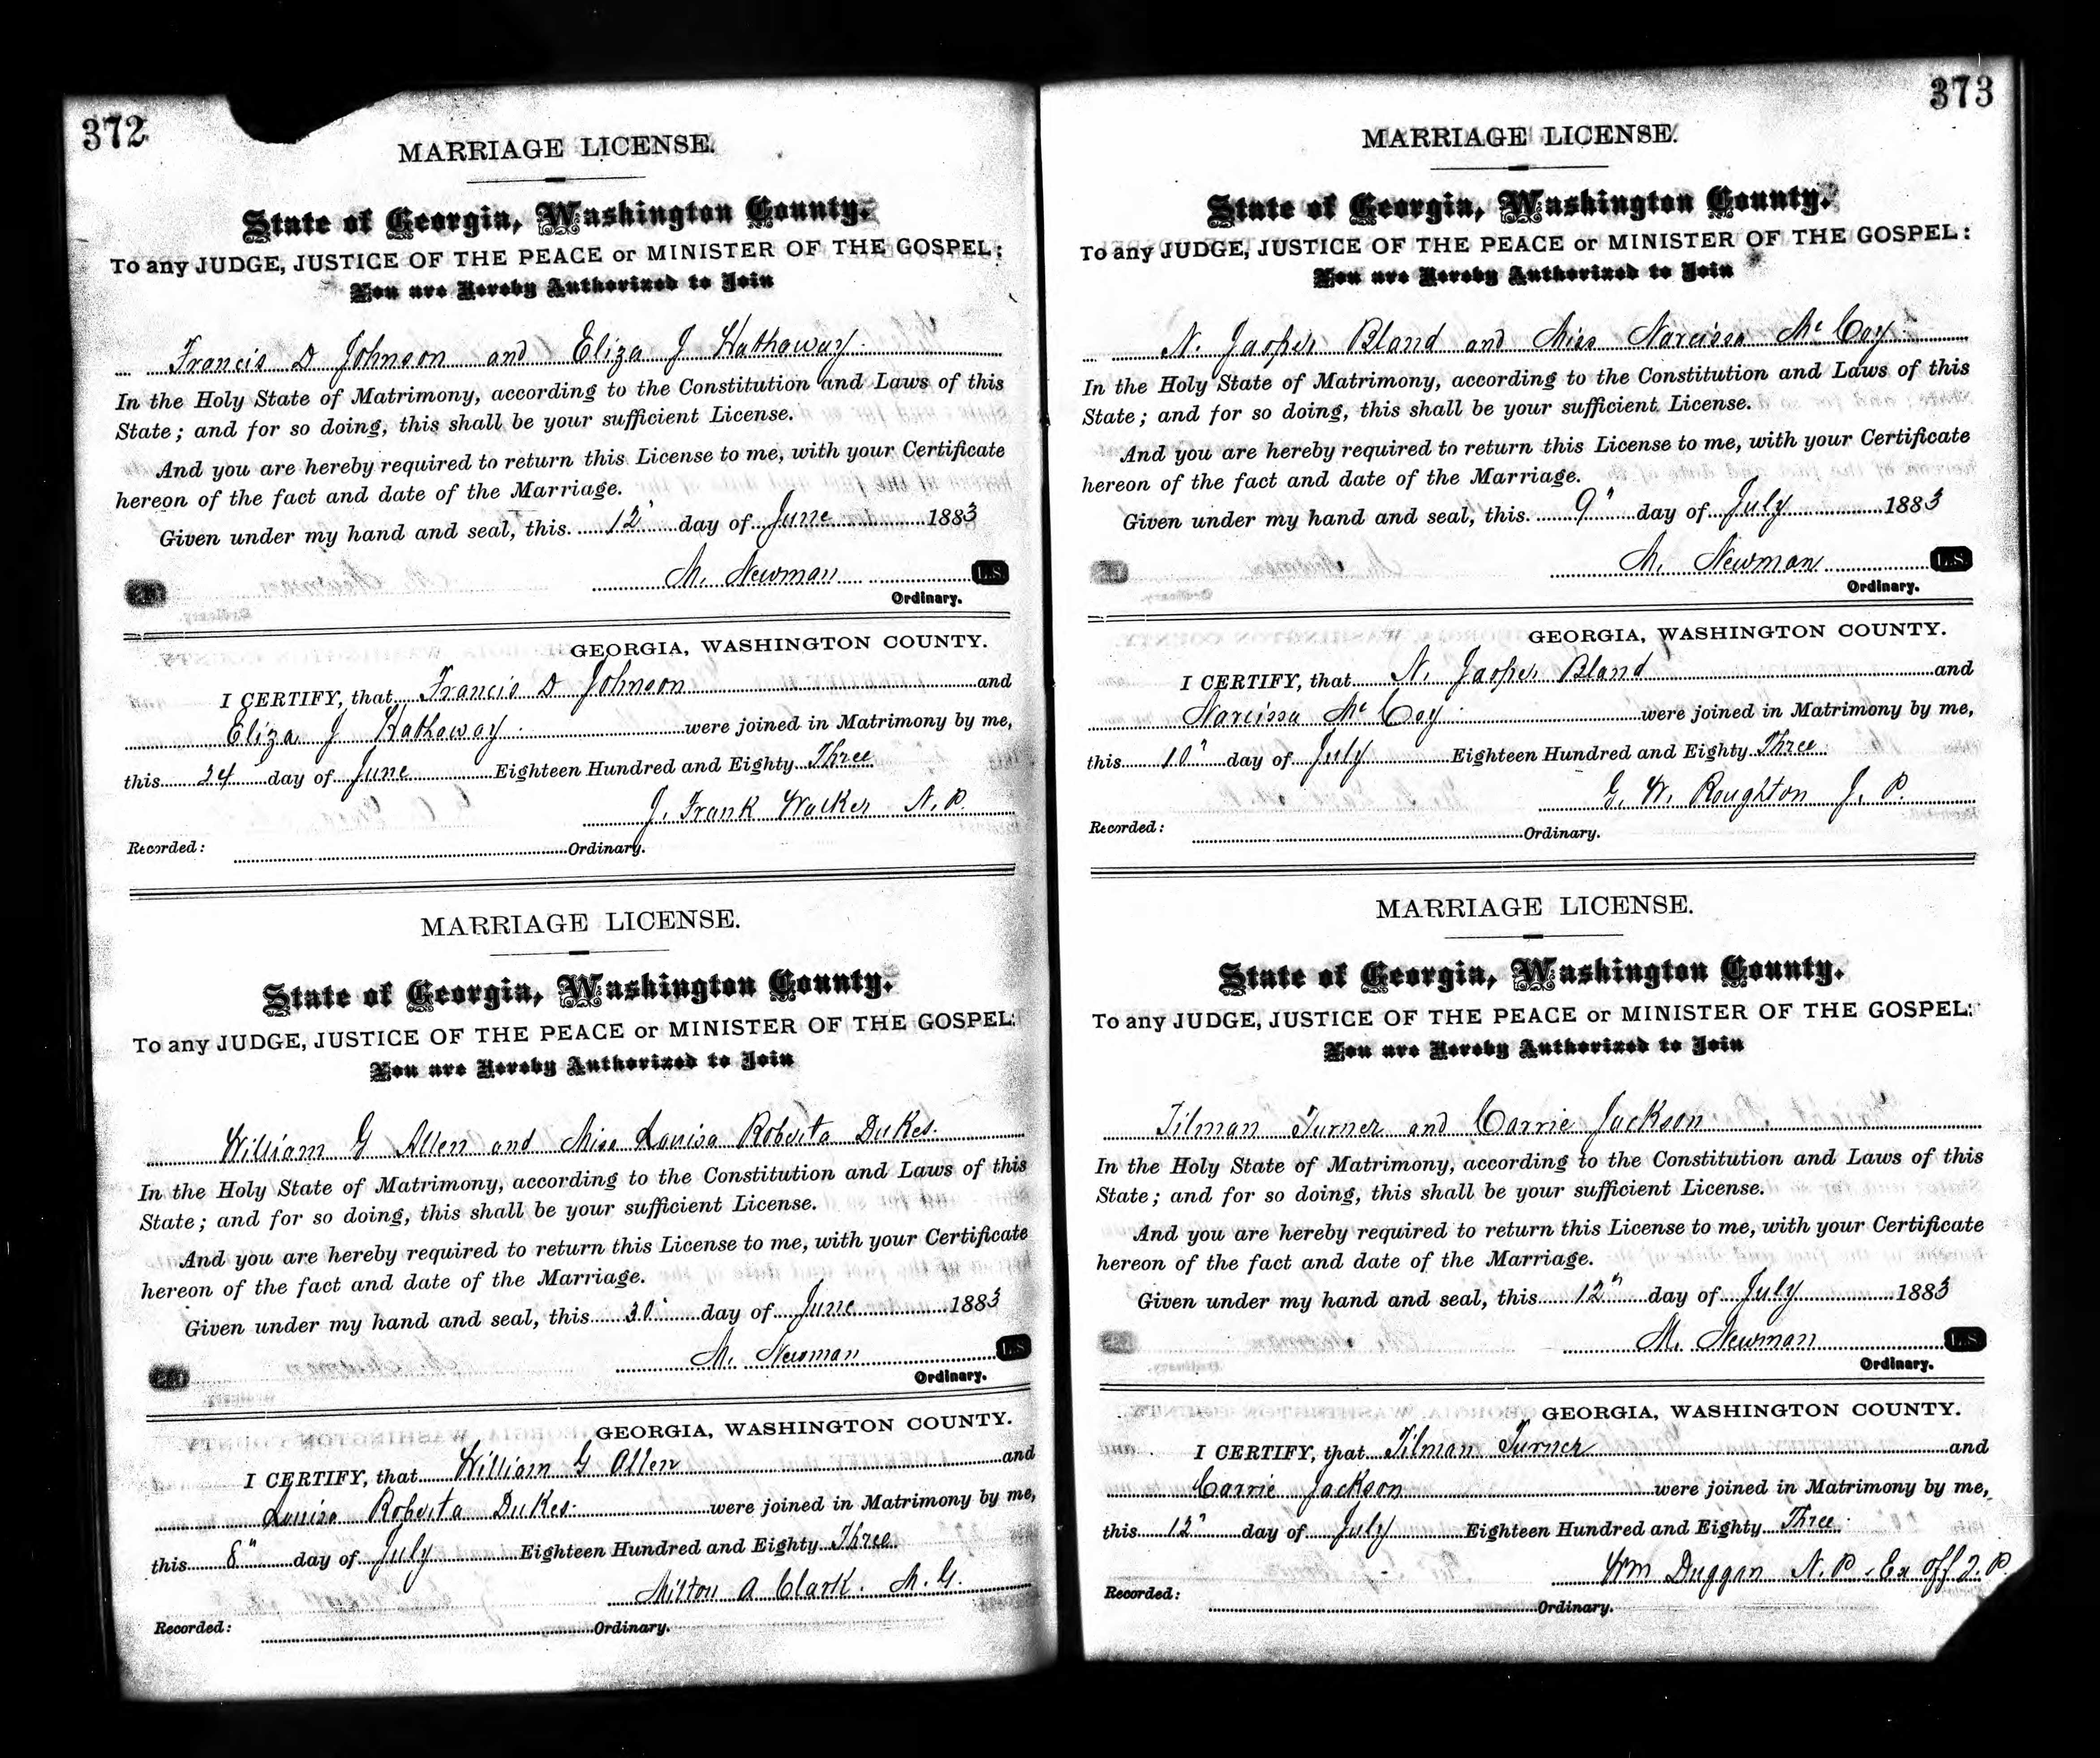 372
MARRIAGE LICENSE.
State of Georgia, Washington County.
To any JUDGE, JUSTICE OF THE PEACE or MINISTER OF THE GOSPEL:
You are Hereby Authorized to Join
Francis D Johnson and Eliza J Hathaway
In the Holy State of Matrimony, according to the Constitution and Laws of this
State; and for so doing, this shall be your sufficient License.
And you are hereby required to return this License to me, with your Certificate
hereon of the fact and date of the Marriage.
Given under my hand and seal, this 12" day of June 1883
M. Newman L.S.
Ordinary.
GEORGIA, WASHINGTON COUNTY.
I CERTIFY, that Francis D Johnson and
Eliza J Hathaway were joined in Matrimony by me,
this 24 day of June Eighteen Hundred and Eighty Three
J. Frank Walker N. P.
Recorded: Ordinary.
MARRIAGE LICENSE.
State of Georgia, Washington County.
To any JUDGE, JUSTICE OF THE PEACE or MINISTER OF THE GOSPEL:
You are Hereby Authorized to Join
William G Allen and Miss Louisa Roberta Dukes.
In the Holy State of Matrimony, according to the Constitution and Laws of this
State; and for so doing, this shall be your sufficient License.
And you are hereby required to return this License to me, with your Certificate
hereon of the fact and date of the Marriage.
Given under my hand and seal, this 30" day of June 1883
M. Newman L.S.
Ordinary.
GEORGIA, WASHINGTON COUNTY.
I CERTIFY, that William G Allen and
Louisa Roberta Dukes were joined in Matrimony by me,
this 8" day of July Eighteen Hundred and Eighty Three
Milton A Clark. M. G.
Recorded: Ordinary.
373
MARRIAGE LICENSE.
State of Georgia, Washington County.
To any JUDGE, JUSTICE OF THE PEACE or MINISTER OF THE GOSPEL:
You are Hereby Authorized to Join
N. Jasper Bland and Miss Narcissa McCoy
In the Holy State of Matrimony, according to the Constitution and Laws of this
State; and for so doing, this shall be your sufficient License.
And you are hereby required to return this License to me, with your Certificate
hereon of the fact and date of the Marriage.
Given under my hand and seal, this. 9" day of July 1883
M. Newman L.S.
Ordinary.
GEORGIA, WASHINGTON COUNTY.
I CERTIFY, that N. Jasper Bland and
Narcissa McCoy were joined in Matrimony by me,
this 10" day of July Eighteen Hundred and Eighty Three
G. W. Roughton J. P.
Recorded: Ordinary.
MARRIAGE LICENSE.
State of Georgia, Washington County.
To any JUDGE, JUSTICE OF THE PEACE or MINISTER OF THE GOSPEL:
You are Hereby Authorized to Join
Tilman Turner and Carrie Jackson
In the Holy State of Matrimony, according to the Constitution and Laws of this
State; and for so doing, this shall be your sufficient License.
And you are hereby required to return this License to me, with your Certificate
hereon of the fact and date of the Marriage.
Given under my hand and seal, this 12" day of July 1883
M. Newman L.S.
Ordinary.
GEORGIA, WASHINGTON COUNTY.
I CERTIFY, that Tilman Turner and
Carrie Jackson were joined in Matrimony by me,
this 12" day of July Eighteen Hundred and Eighty Three
Wm Duggan N. P. & Ex Off J. P.
Recorded: Ordinary.